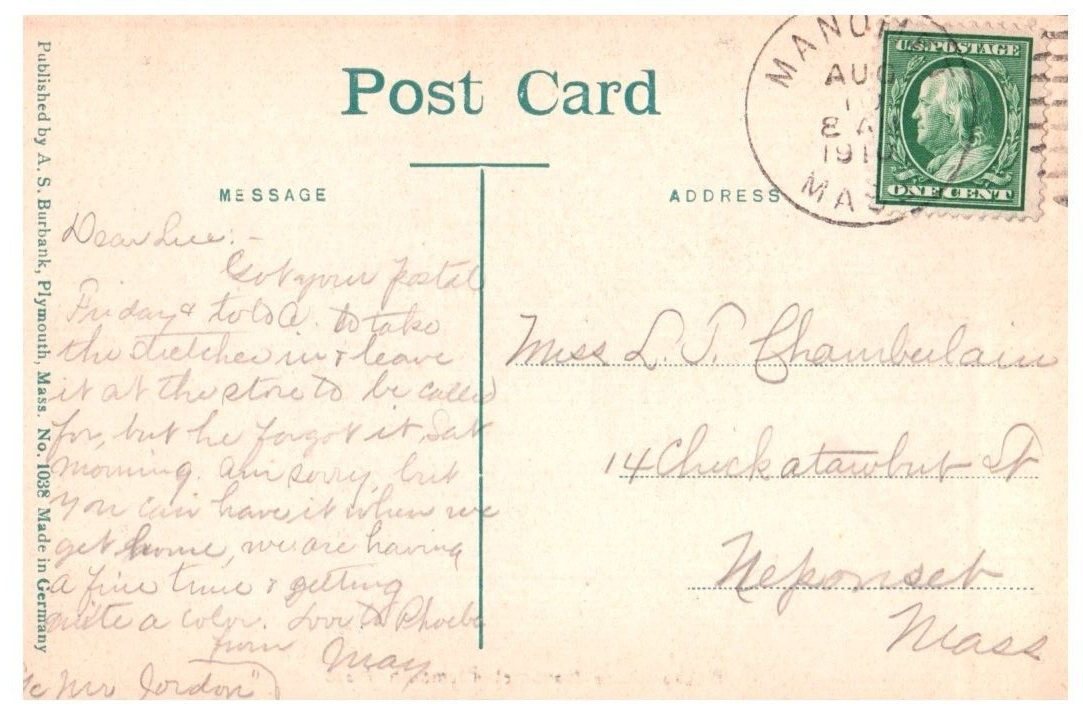 Published by A. S. Burbank, Plymouth, Mass. No. 1038 Made in Germany
Post Card
MESSAGE
Dear Lue:-
Got your postal
Friday & told A. to take
the stretcher in & leave
it at the store to be called
for, but he forgot it Sat
morning. am sorry, but
you can have it when we
get home, we are having
a fine time & getting
quite a color. Love to Phoebe
from May
Mr Jordon"
ADDRESS
MANOM
AUG
8 A
1910
MAS
U.S. POSTAGE
ONE CENT
Miss L. T. Chamberlain
14 Chickatawbut St
Neponset
Mass